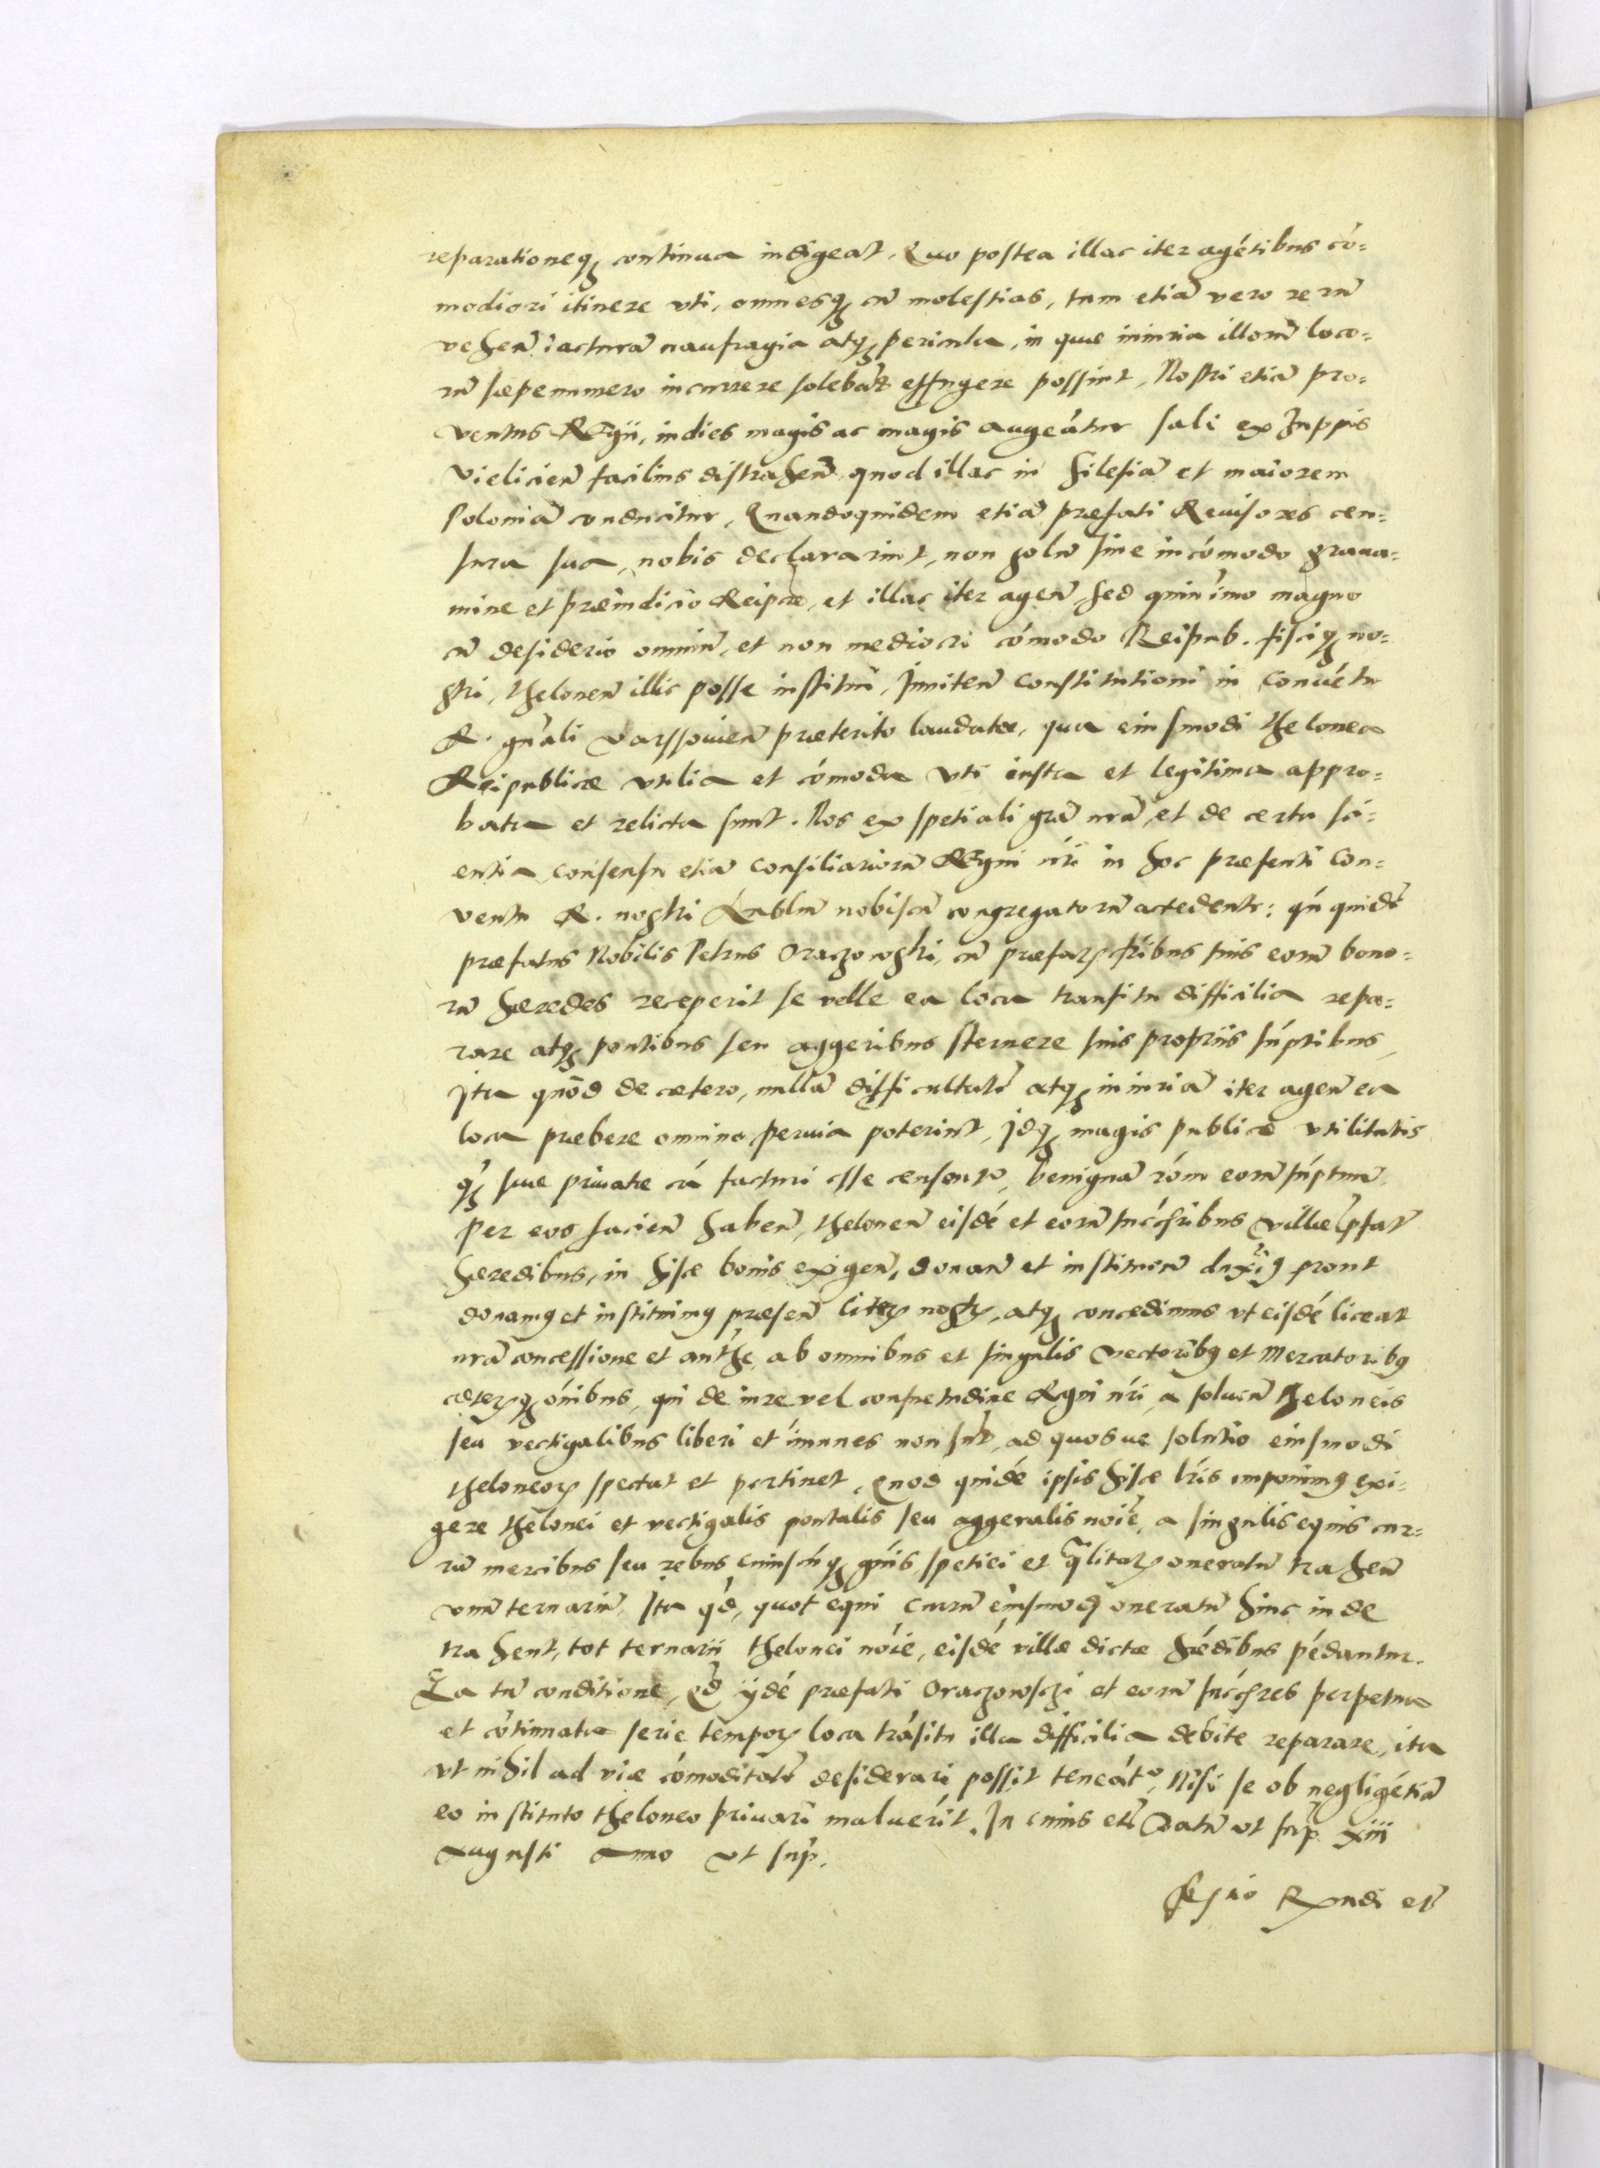 reparationeq[ue] continua indigeat. Quo postea illac iter agẽtibus cõ=
modiori itinere vti, omnesq[ue] cũ molestias, tum etiã vero rerũ
vehen̄. iacturã naufragia atq[ue] pericula, in quae iniuria illorũ loco=
rũ saepenumero incurrere solebãt effugere possint, Nostri etiã pro=
ventus Regii, indies magis ac magis augeãtur sali ex Zuppis
Vieliciен̄ facilius distrahen̄ quod illac in Silesiã et maiorem
Poloniã conducitur, Quandoquidem etiã praefati Reuisores cen=
sura sua, nobis declararint, non solũ sine incõmodo graua=
mine et praeiudicio Reipcae, et illac iter agen̄ sed quin imo magno
cũ desiderio omniũ, et non mediocri cõmodo Reipub. fisciq[ue] no=
stri, theloneũ illic posse institui, Inniten̄ constitutioni in Conuẽtu
R. gñali Varssouien̄ praeterito laudatae, qua eiusmodi thelonea
Reipublicae vtilia et cõmoda vti iusta et legitima appro=
bata et relicta sunt. Nos ex spetiali grã nrã, et de certa sci=
entia, consensu etiã consiliariorũ Regni nri in hoc praesenti Con=
ventu R. nostri Lublin̄ nobiscũ congregatorũ accedente: qñ quidẽ
praefatus Nobilis Petrus Oraczowski, cũ praefatis fribus suis eorũ bono=
rũ haeredes receperit se velle ea loca transitu difficilia repa=
rare atq[ue] pontibus seu aggeribus sternere suis propriis sũptibus,
Ita quod de caetero, nullã difficultatẽ atq[ue] iniuriã iter agen̄ ea
loca praebere omnino peruia poterint, Idq[ue] magis publicae vtilitatis
q[uam] suae priuatae cã facturi esse censentur, benignã rõm eorũ sũptuũ
per eos facien̄ haben̄, theloneũ eisdẽ et eorũ succesribus villae pfat
haeredibus, in hisce bonis exigen̄, donan̄ et instituen̄ duximus prout
donamus et instituimus praesen̄ literis nostris, atq[ue] concedimus vt eisdẽ liceat
nrã concessione et authe, ab omnibus et singulis vectoribus et Mercatoribus
caeterisq[ue] õnibus, qui de iure vel consuetudine Regni nri, a soluen̄ theloneis
seu vectigalibus liberi et imunes non sunt, ad quosue solutio eiusmodi
theloneorum spectat et pertinet. Quod quidẽ ipsis hisce lris imponimus exi=
gere thelonei et vectigalis pontalis seu aggeralis noie, a singulis equis cur=
rũ mercibus seu rebus cuiuscũq[ue] gñis spetiei et qualitatis oneratũ trahen̄
vnũ ternariũ, Ita qd, quot equi currũ eiusmodi oneratũ hinc inde
trahent, tot ternarii thelonei noie, eisdẽ villae dictae haẽdibus pẽdantur.
Ea tñ conditione, qd iidẽ praefati Oraczowsczi et eorũ succesres perpetua
et cõtinuata serie temporis loca trãsitu illa difficilia debite reparare, ita
vt nihil ad viae cõmoditatẽ desiderari possit teneãtur, Nisi se ob negligẽtiã
eo instituto theloneo priuari maluerĩt. In cuius etc Datũ vt sup. xiii
Augusti anno vt sup.